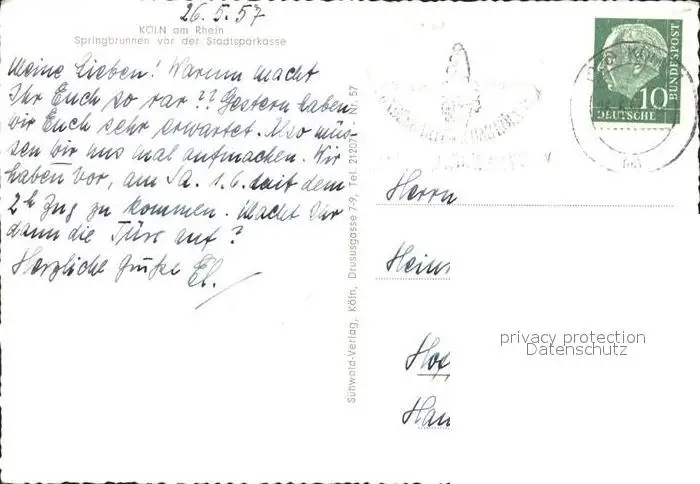 26.5.57
KÖLN am Rhein
Springbrunnen vor der Stadtsparkasse
Meine Lieben! Warum macht
Ihr Euch so rar?? Gestern haben
wir Euch sehr erwartet. Also müs-
sen wir uns mal aufmachen. Wir
haben vor, am Sa. 1.6. mit dem
2h Zug zu kommen. Macht Ihr
dann die Türe auf?
Herzliche Grüße El.
Sühwald-Verlag, Köln, Drususgasse 7-9, Tel. 21207 Nr. 57
BUNDESPOST
10
DEUTSCHE
Herrn
Hein
Hof
Han
privacy protection
Datenschutz